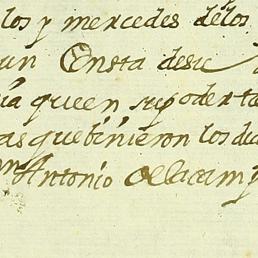 los y mercedes delos
un Consta desu
ia que en su poder te
as que binieron los di
on Antonio dela cam